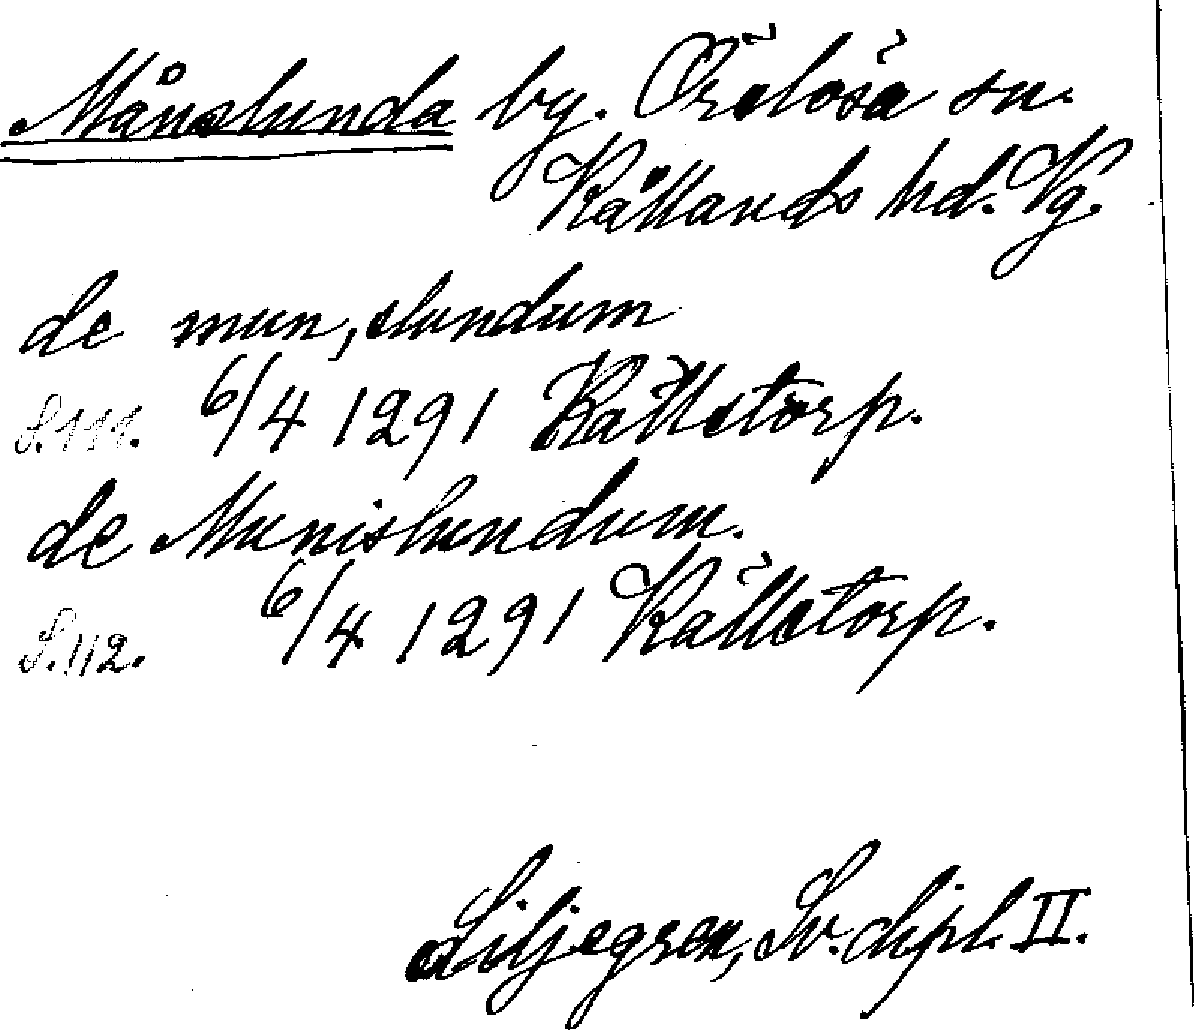 Månslunda by. Örslösa sn.
Kållands hd. Vg.
de mun, slundum
S. 111. 6/4 1291 Källstorp.
de Munislundum.
S. 112. 6/4 1291 Källstorp.
Liljegren, Sv. dipl. II.